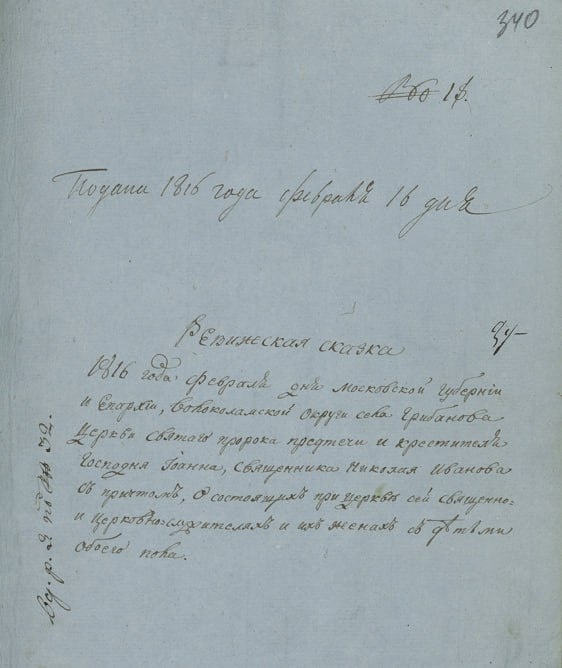 340
18.
Подана 1816 года февраля 16 дня
Ревижская сказка
1816 года февраля дня Московской Губернiи
и Епархiи, Волоколамской округи села Грибанова
Церкви Святаго пророка предтечи и крестителя
Господня Iоанна, священника Николая Иванова
съ причтомъ, о состоящихъ при церквѣ сей священно-
и церковно-служителяхъ и ихъ женахъ съ дѣтьми
обоего пола.